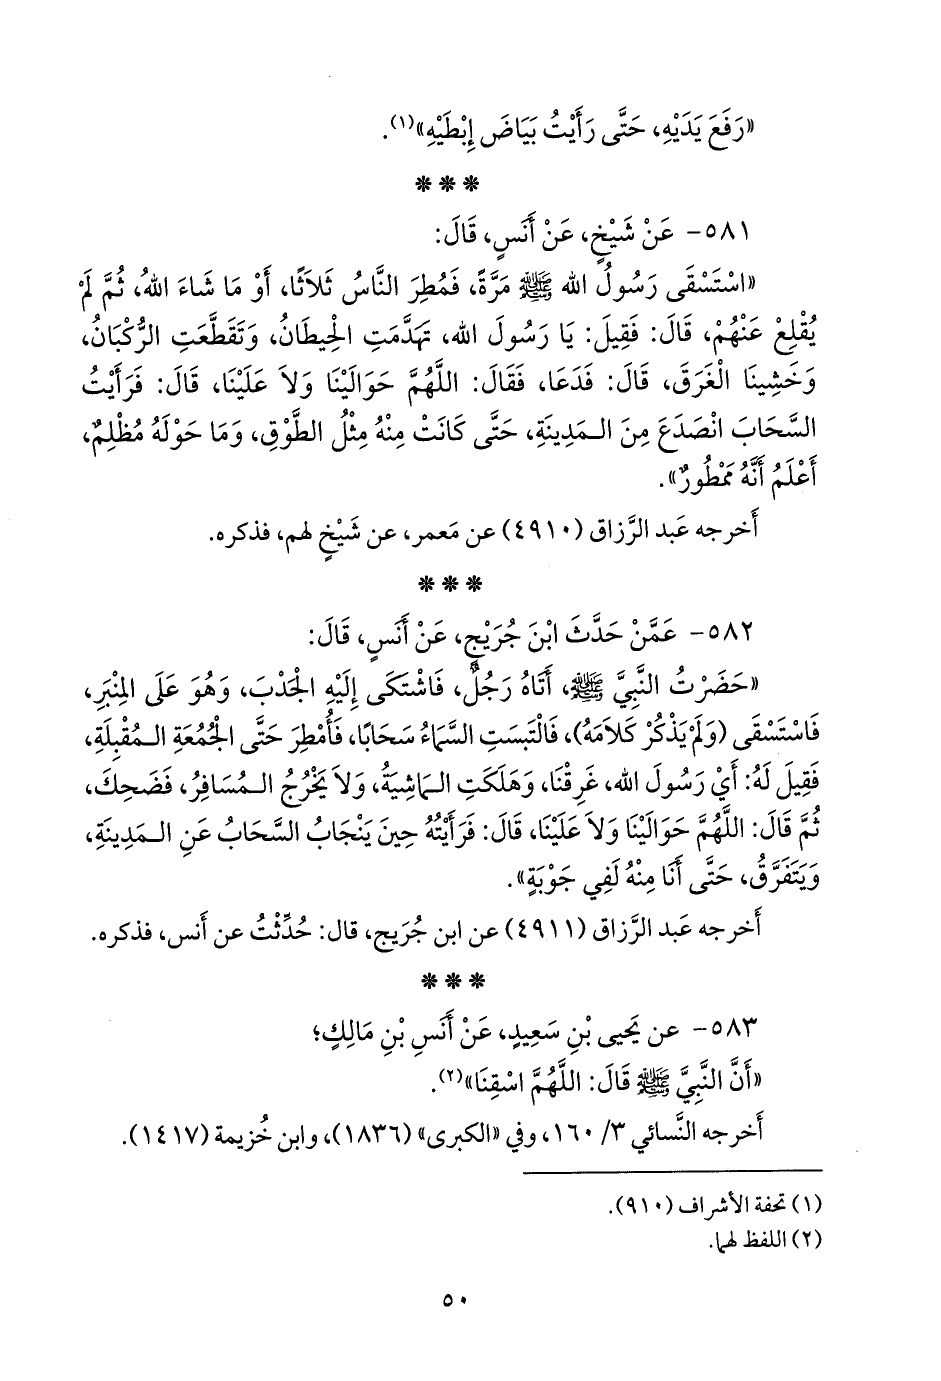 «رَفَعَ يَدَيْهِ، حَتَّى رَأَيْتُ بَيَاضَ إِبْطَيْهِ»(١).
***
٥٨١- عَنْ شَيْخٍ، عَنْ أَنَسٍ، قَالَ:
«اسْتَسْقَى رَسُولُ الله ﷺ مَرَّةً، فَمُطِرَ النَّاسُ ثَلاَثًا، أَوْ مَا شَاءَ اللهُ، ثُمَّ لَمْ
يُقْلِعْ عَنْهُمْ، قَالَ: فَقِيلَ: يَا رَسُولَ الله، تَهَدَّمَتِ الْحِيطَانُ، وَتَقَطَّعَتِ الرُّكْبَانُ،
وَخَشِينَا الْغَرَقَ، قَالَ: فَدَعَا، فَقَالَ: اللَّهُمَّ حَوَالَيْنَا وَلاَ عَلَيْنَا، قَالَ: فَرَأَيْتُ
السَّحَابَ انْصَدَعَ مِنَ الـمَدِينَةِ، حَتَّى كَانَتْ مِنْهُ مِثْلُ الطَّوْقِ، وَمَا حَوْلَهُ مُظْلِمٌ،
أَعْلَمُ أَنَّهُ مَمْطُورٌ».
أَخرجه عَبد الرَّزاق (٤٩١٠) عن مَعمر، عن شَيْخٍ لهم، فذكره.
***
٥٨٢- عَمَّنْ حَدَّثَ ابْنَ جُرَيْجٍ، عَنْ أَنَسٍ، قَالَ:
«حَضَرْتُ النَّبِيَّ ﷺ، أَتَاهُ رَجُلٌ، فَاشْتَكَى إِلَيْهِ الْجَدْبَ، وَهُوَ عَلَى الْمِنْبَرِ،
فَاسْتَسْقَى (وَلَمْ يَذْكُرْ كَلاَمَهُ)، فَالْتَبَسَتِ السَّمَاءُ سَحَابًا، فَأُمْطِرَ حَتَّى الْجُمُعَةِ الـمُقْبِلَةِ،
فَقِيلَ لَهُ: أَيْ رَسُولَ الله، غَرِقْنَا، وَهَلَكَتِ الـمَاشِيَةُ، وَلاَ يَخْرُجُ الـمُسَافِرُ، فَضَحِكَ،
ثُمَّ قَالَ: اللَّهُمَّ حَوَالَيْنَا وَلاَ عَلَيْنَا، قَالَ: فَرَأَيْتُهُ حِينَ يَنْجَابُ السَّحَابُ عَنِ الـمَدِينَةِ،
وَيَتَفَرَّقُ، حَتَّى أَنَا مِنْهُ لَفِي جَوْبَةٍ».
أَخرجه عَبد الرَّزاق (٤٩١١) عن ابن جُرَيج، قال: حُدِّثْتُ عن أَنس، فذكره.
***
٥٨٣- عن يَحيى بْنِ سَعِيدٍ، عَنْ أَنَسِ بْنِ مَالِكٍ؛
«أَنَّ النَّبِيَّ ﷺ قَالَ: اللَّهُمَّ اسْقِنَا»(٢).
أَخرجه النَّسائي ٣/ ١٦٠، وفي «الكبرى» (١٨٣٦)، وابن خُزيمة (١٤١٧).
(١) تحفة الأشراف (٩١٠).
(٢) اللفظ لهما.
٥٠